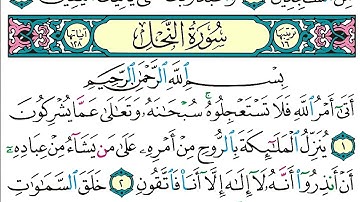 ترتيبها ١٦ سُورَةُ النَّحْلِ آياتها ١٢٨
بِسْمِ اللَّهِ الرَّحْمَٰنِ الرَّحِيمِ
أَتَىٰٓ أَمْرُ اللَّهِ فَلَا تَسْتَعْجِلُوهُ ۚ سُبْحَانَهُۥ وَتَعَالَىٰ عَمَّا يُشْرِكُونَ
١ يُنَزِّلُ الْمَلَٰٓئِكَةَ بِالرُّوحِ مِنْ أَمْرِهِۦ عَلَىٰ مَن يَشَآءُ مِنْ عِبَادِهِۦٓ
أَنْ أَنذِرُوٓا۟ أَنَّهُۥ لَآ إِلَٰهَ إِلَّآ أَنَا۠ فَاتَّقُونِ ٢ خَلَقَ السَّمَٰوَٰتِ